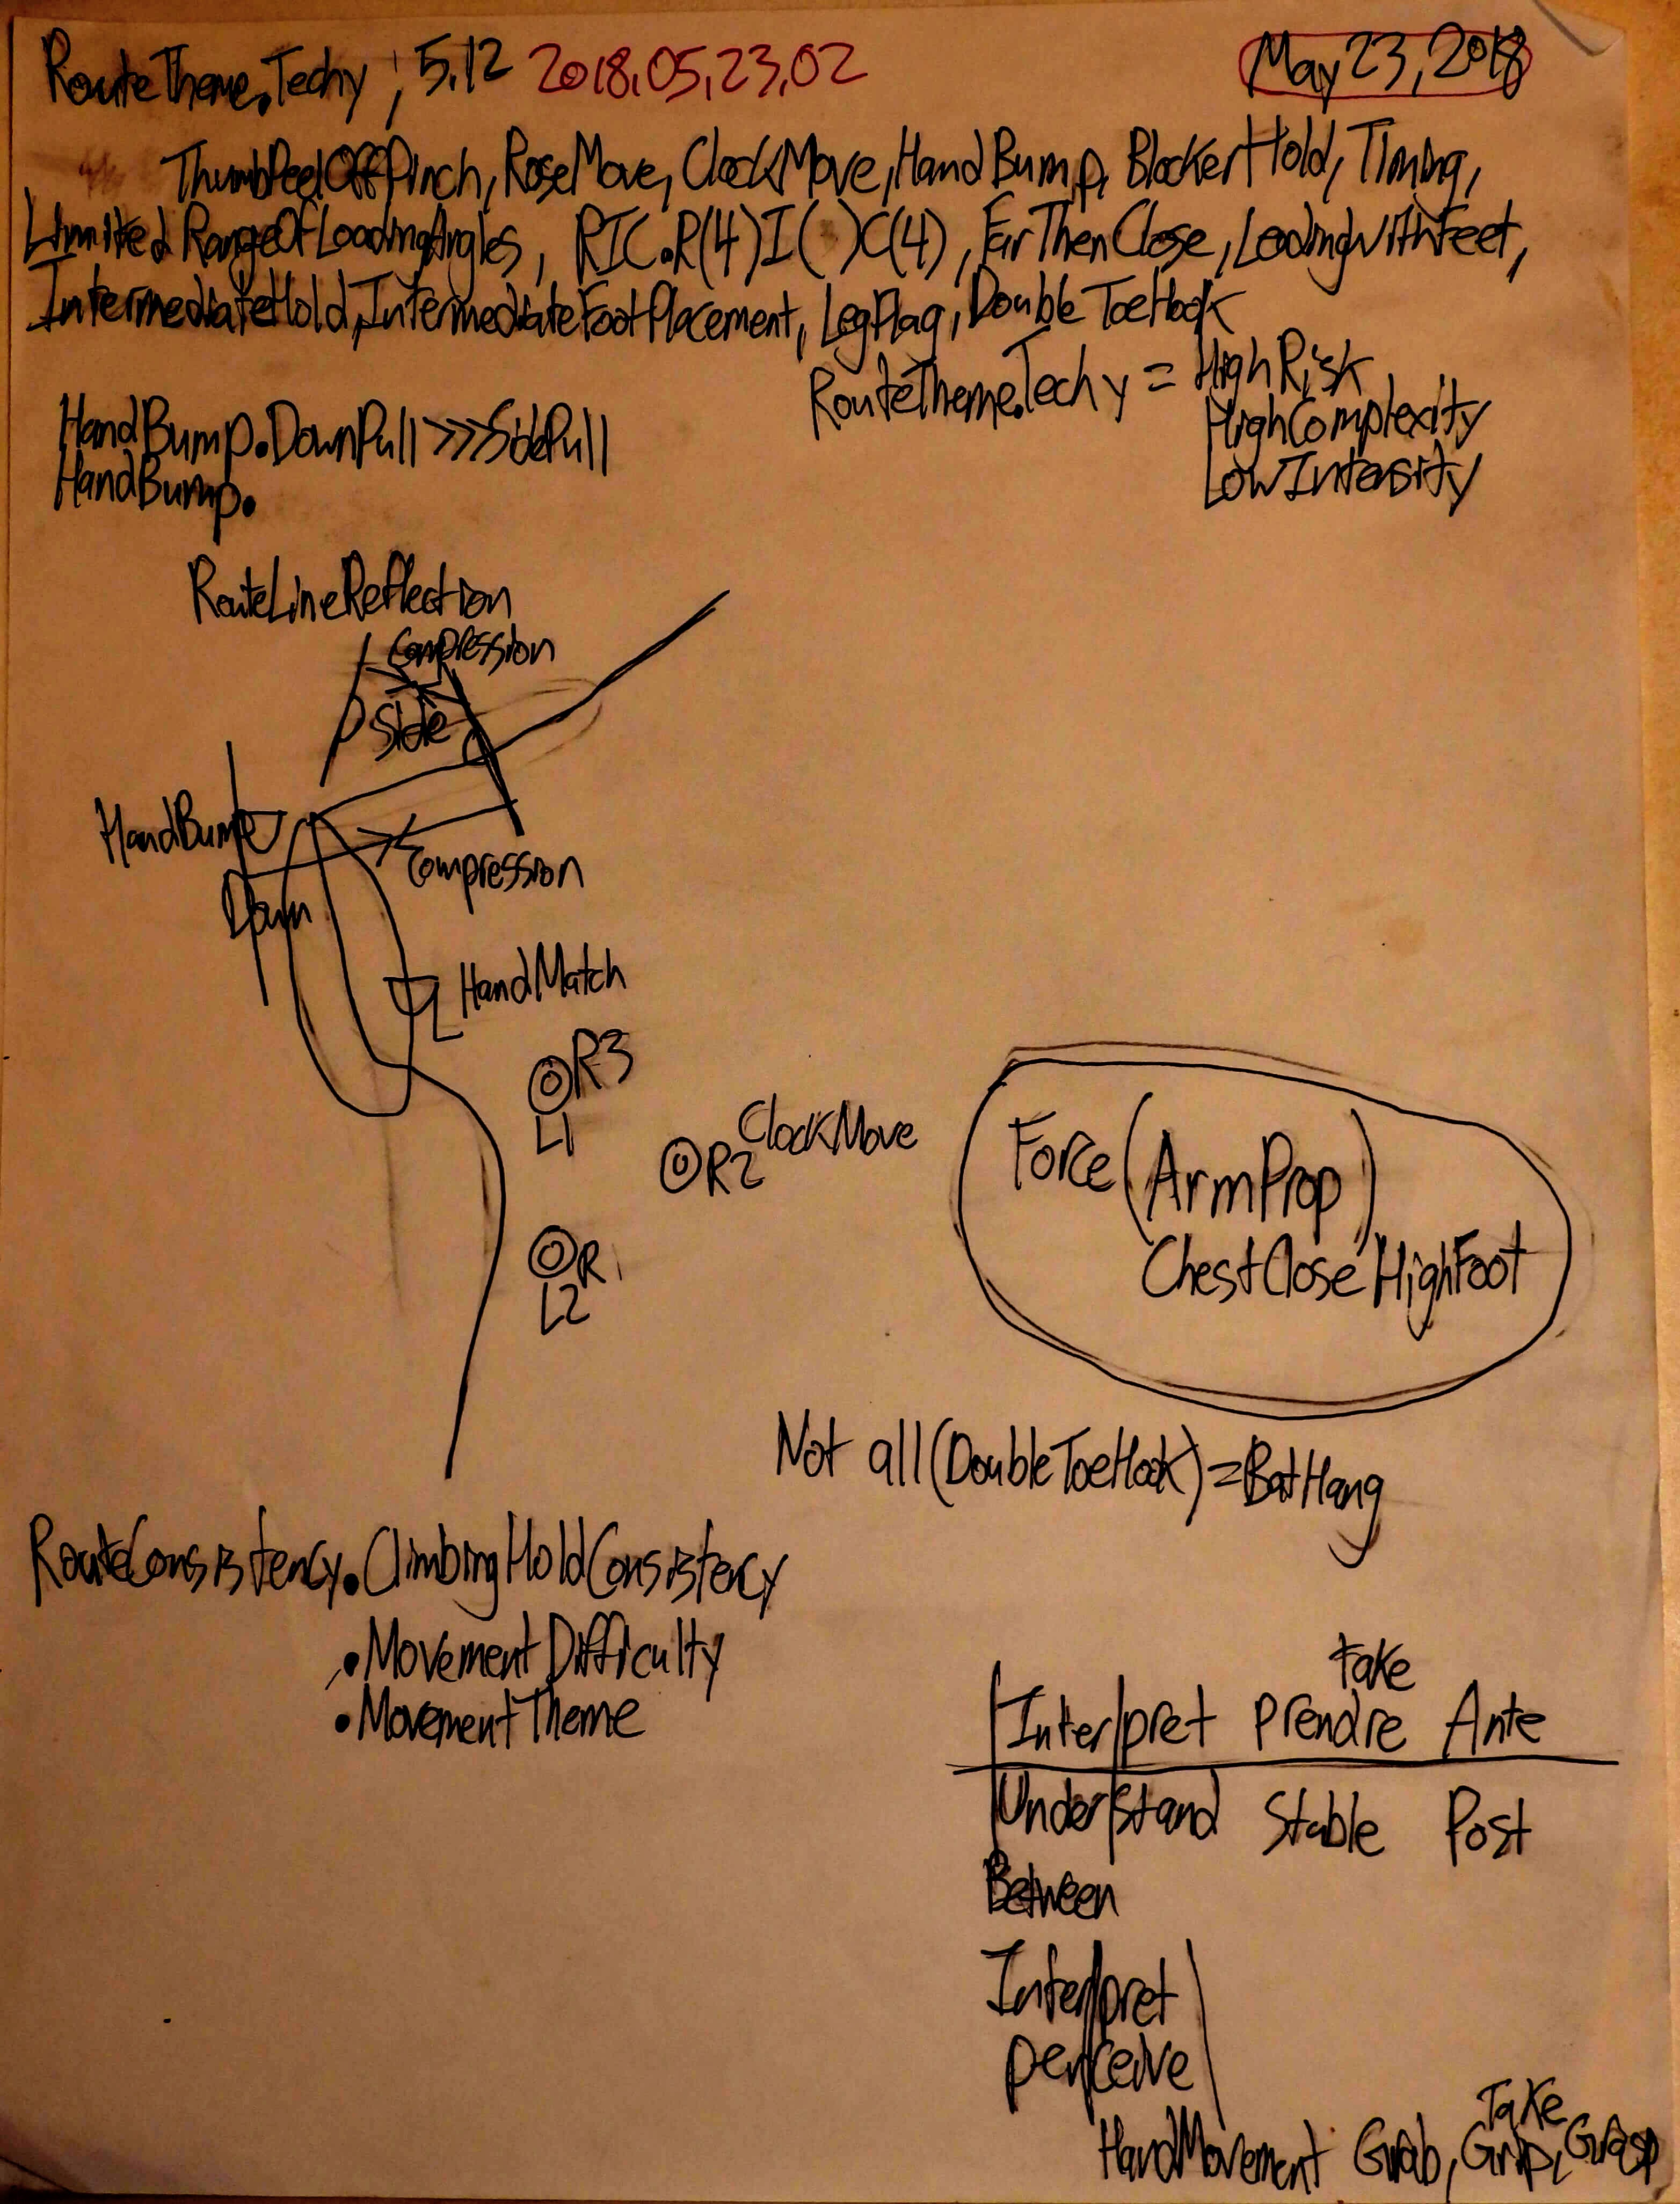 RouteTheme.Techy, 5.12 2018.05.23.02 May 23, 2018
ThumbPeelOffPinch, RoseMove, ClockMove, HandBump, BlockerHold, Timing,
LimitedRangeOfLoadingAngles, RIC.R(4)I( )C(4), FarThenClose, LeadingWithFeet,
IntermediateHold, IntermediateFootPlacement, LegFlag, DoubleToeHook
RouteTheme.Techy = HighRisk
HighComplexity
LowIntensity
HandBump.DownPull>>>SidePull
HandBump.
RouteLineReflection
Compression
Side
HandBump
Compression
Down
HandMatch
R3
L1
ClockMove
R2
R1
L2
Force(ArmProp)
ChestCloseHighFoot
Not all(DoubleToeHook)=BatHang
RouteConsistency.ClimbingHoldConsistency
.MovementDifficulty
.MovementTheme
take
Inter|pret Prendre Ante
Under|stand Stable Post
Between
Inter|pret
per|ceive
Take
HandMovement Grab, Grip, Grasp